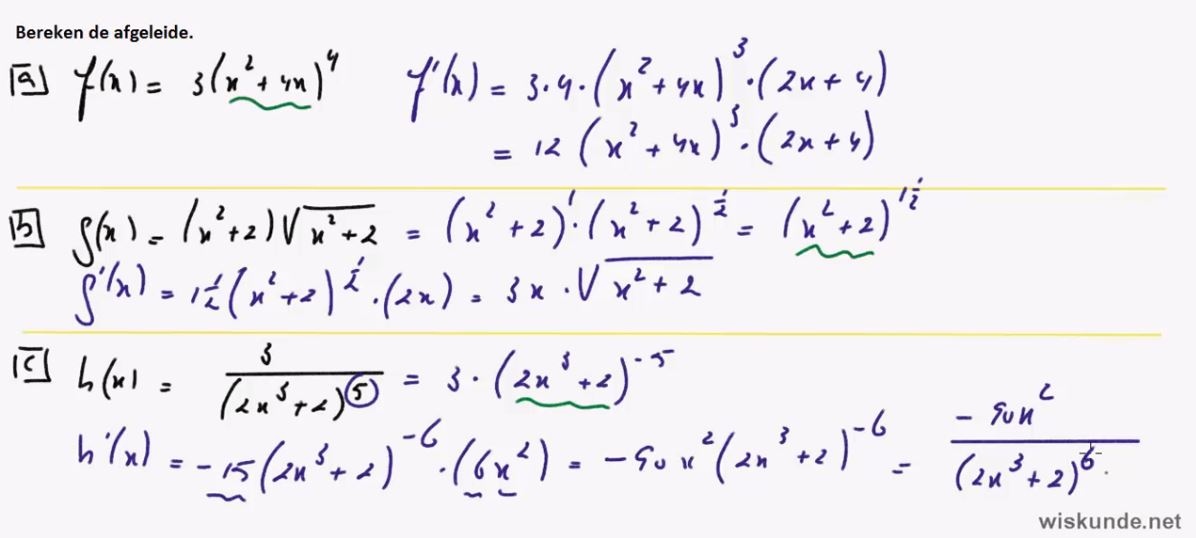 Bereken de afgeleide.
a f(x) = 3(x² + 4x)⁴ f'(x) = 3·4·(x² + 4x)³·(2x + 4)
= 12 (x² + 4x)³·(2x + 4)
b g(x) = (x²+2)√(x²+2) = (x² + 2)¹·(x² + 2)^½ = (x² + 2)^1½
g'(x) = 1½(x²+2)^½·(2x) = 3x·√(x² + 2)
c h(x) = 3/(2x³+2)⁵ = 3·(2x³+2)⁻⁵
h'(x) = -15(2x³+2)⁻⁶·(6x²) = -90x²(2x³+2)⁻⁶ = -90x²/(2x³+2)⁶.
wiskunde.net